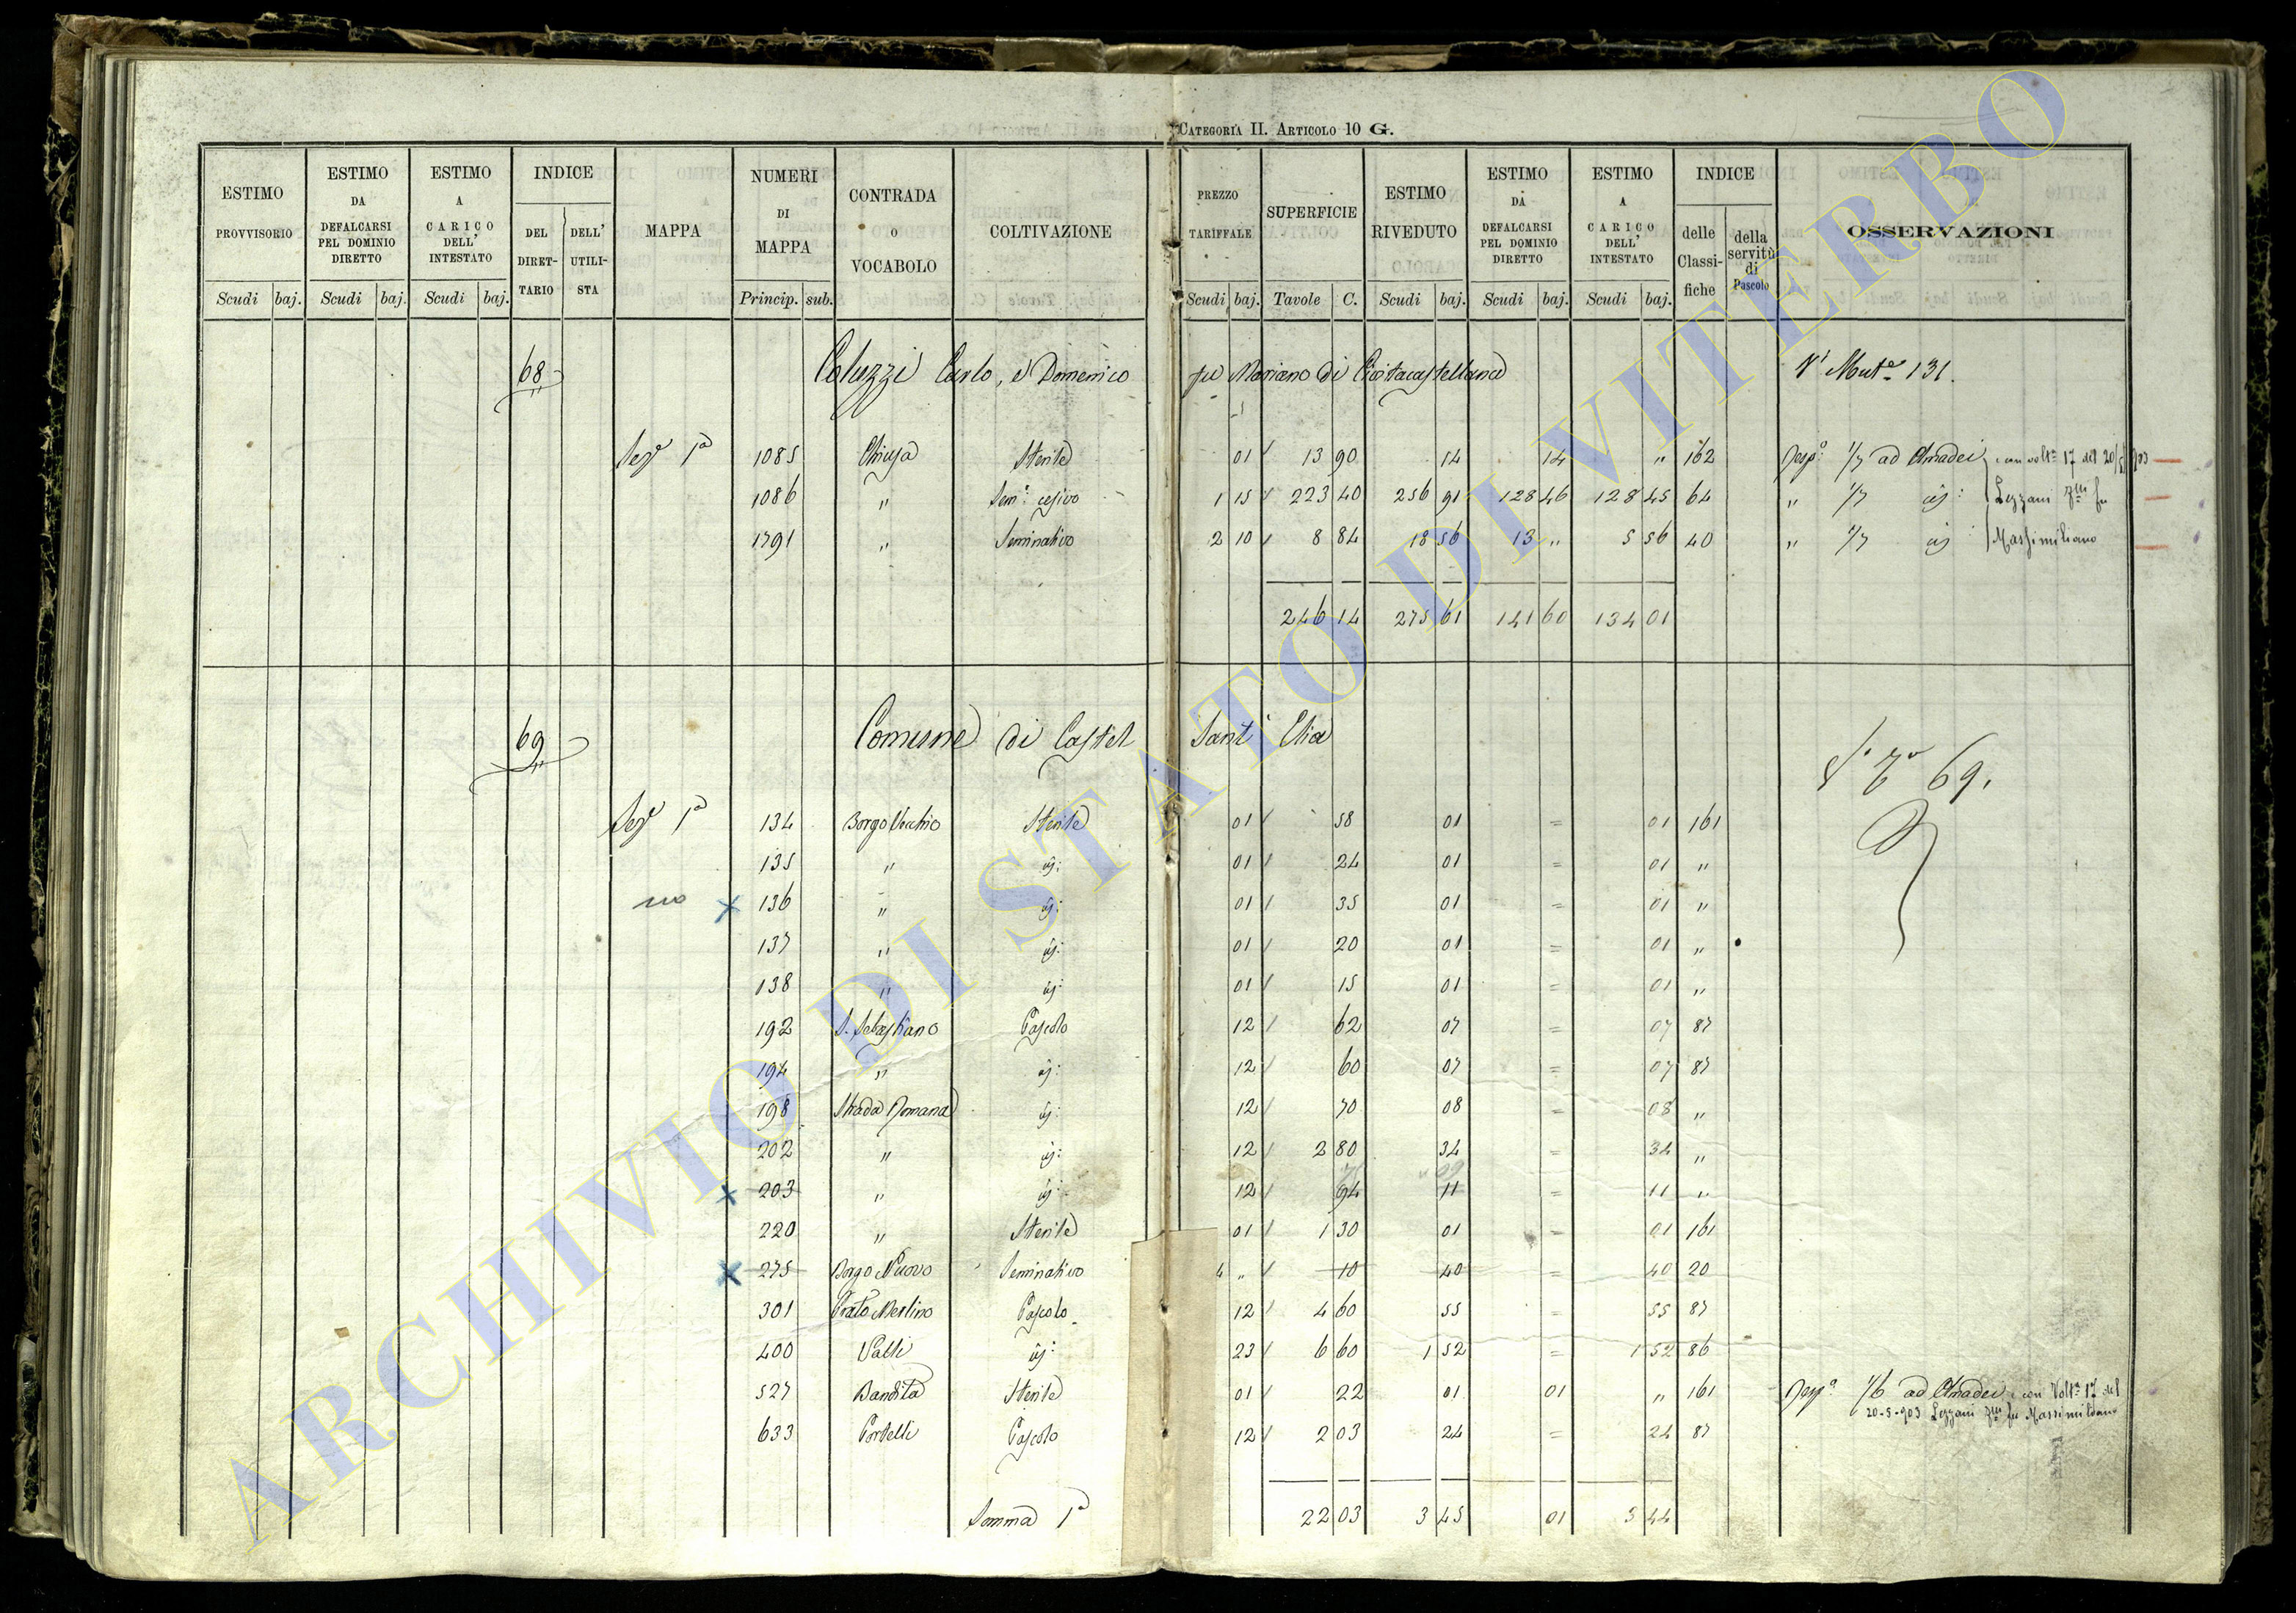 CATEGORIA II. ARTICOLO 10 G.
ESTIMO PROVVISORIO Scudi baj.
ESTIMO DA DEFALCARSI PEL DOMINIO DIRETTO Scudi baj.
ESTIMO A CARICO DELL' INTESTATO Scudi baj.
INDICE DEL DIRETTARIO DELL' UTILISTA
MAPPA
NUMERI DI MAPPA Princip. sub.
CONTRADA O VOCABOLO
COLTIVAZIONE
PREZZO TARIFFALE Scudi baj.
SUPERFICIE Tavole C.
ESTIMO RIVEDUTO Scudi baj.
ESTIMO DA DEFALCARSI PEL DOMINIO DIRETTO Scudi baj.
ESTIMO A CARICO DELL' INTESTATO Scudi baj.
INDICE delle Classifiche della servitù di Pascolo
OSSERVAZIONI
68 Coluzzi Carlo, e Domenico fu Mariano di Civitacastellana Nº Mutº 131.
Sezº 1ª 1085 Chiusa Sterile 01 13 90 14 14 " 162 Rispº 1/7 ad Amadei con voltª 17 del 20/5 903
1086 " Semº cesivo 1 15 223 40 256 91 128 46 128 45 64 " 1/7 id: Lezzani fu
1791 " Seminativo 2 10 8 84 18 56 13 " 5 56 40 " 1/7 id Massimiliano
246 14 275 61 141 60 134 01
69 Comune di Castel Sant' Elia
69.
Sezº 1ª 134 Borgo Vecchio Sterile 01 58 01 = 01 161
135 " id: 01 24 01 = 01 "
no x 136 " id: 01 35 01 = 01 "
137 " id: 01 20 01 = 01 "
138 " id: 01 15 01 = 01 "
192 S. Sebastiano Pascolo 12 62 07 = 07 87
194 " id: 12 60 07 = 07 87
198 Strada Romana id: 12 70 08 = 08 "
202 " id: 12 2 80 34 = 34 "
x 203 " id: 12 94 11 = 11 "
220 " Sterile 01 1 30 01 = 01 161
x 275 Borgo Nuovo Seminativo 4 " 10 40 = 40 20
301 Prato Merlino Pascolo 12 4 60 55 = 55 87
400 Valli id: 23 6 60 1 52 = 1 52 86
527 Bandita Sterile 01 22 01 01 " 161 Rispº 1/6 ad Amadei con Voltª 17 del
20-5-903 Lezzani fu Massimiliano
633 Portelli Pascolo 12 2 03 24 = 24 87
Somma 1ª 22 03 3 45 01 3 44
ARCHIVIO DI STATO DI VITERBO